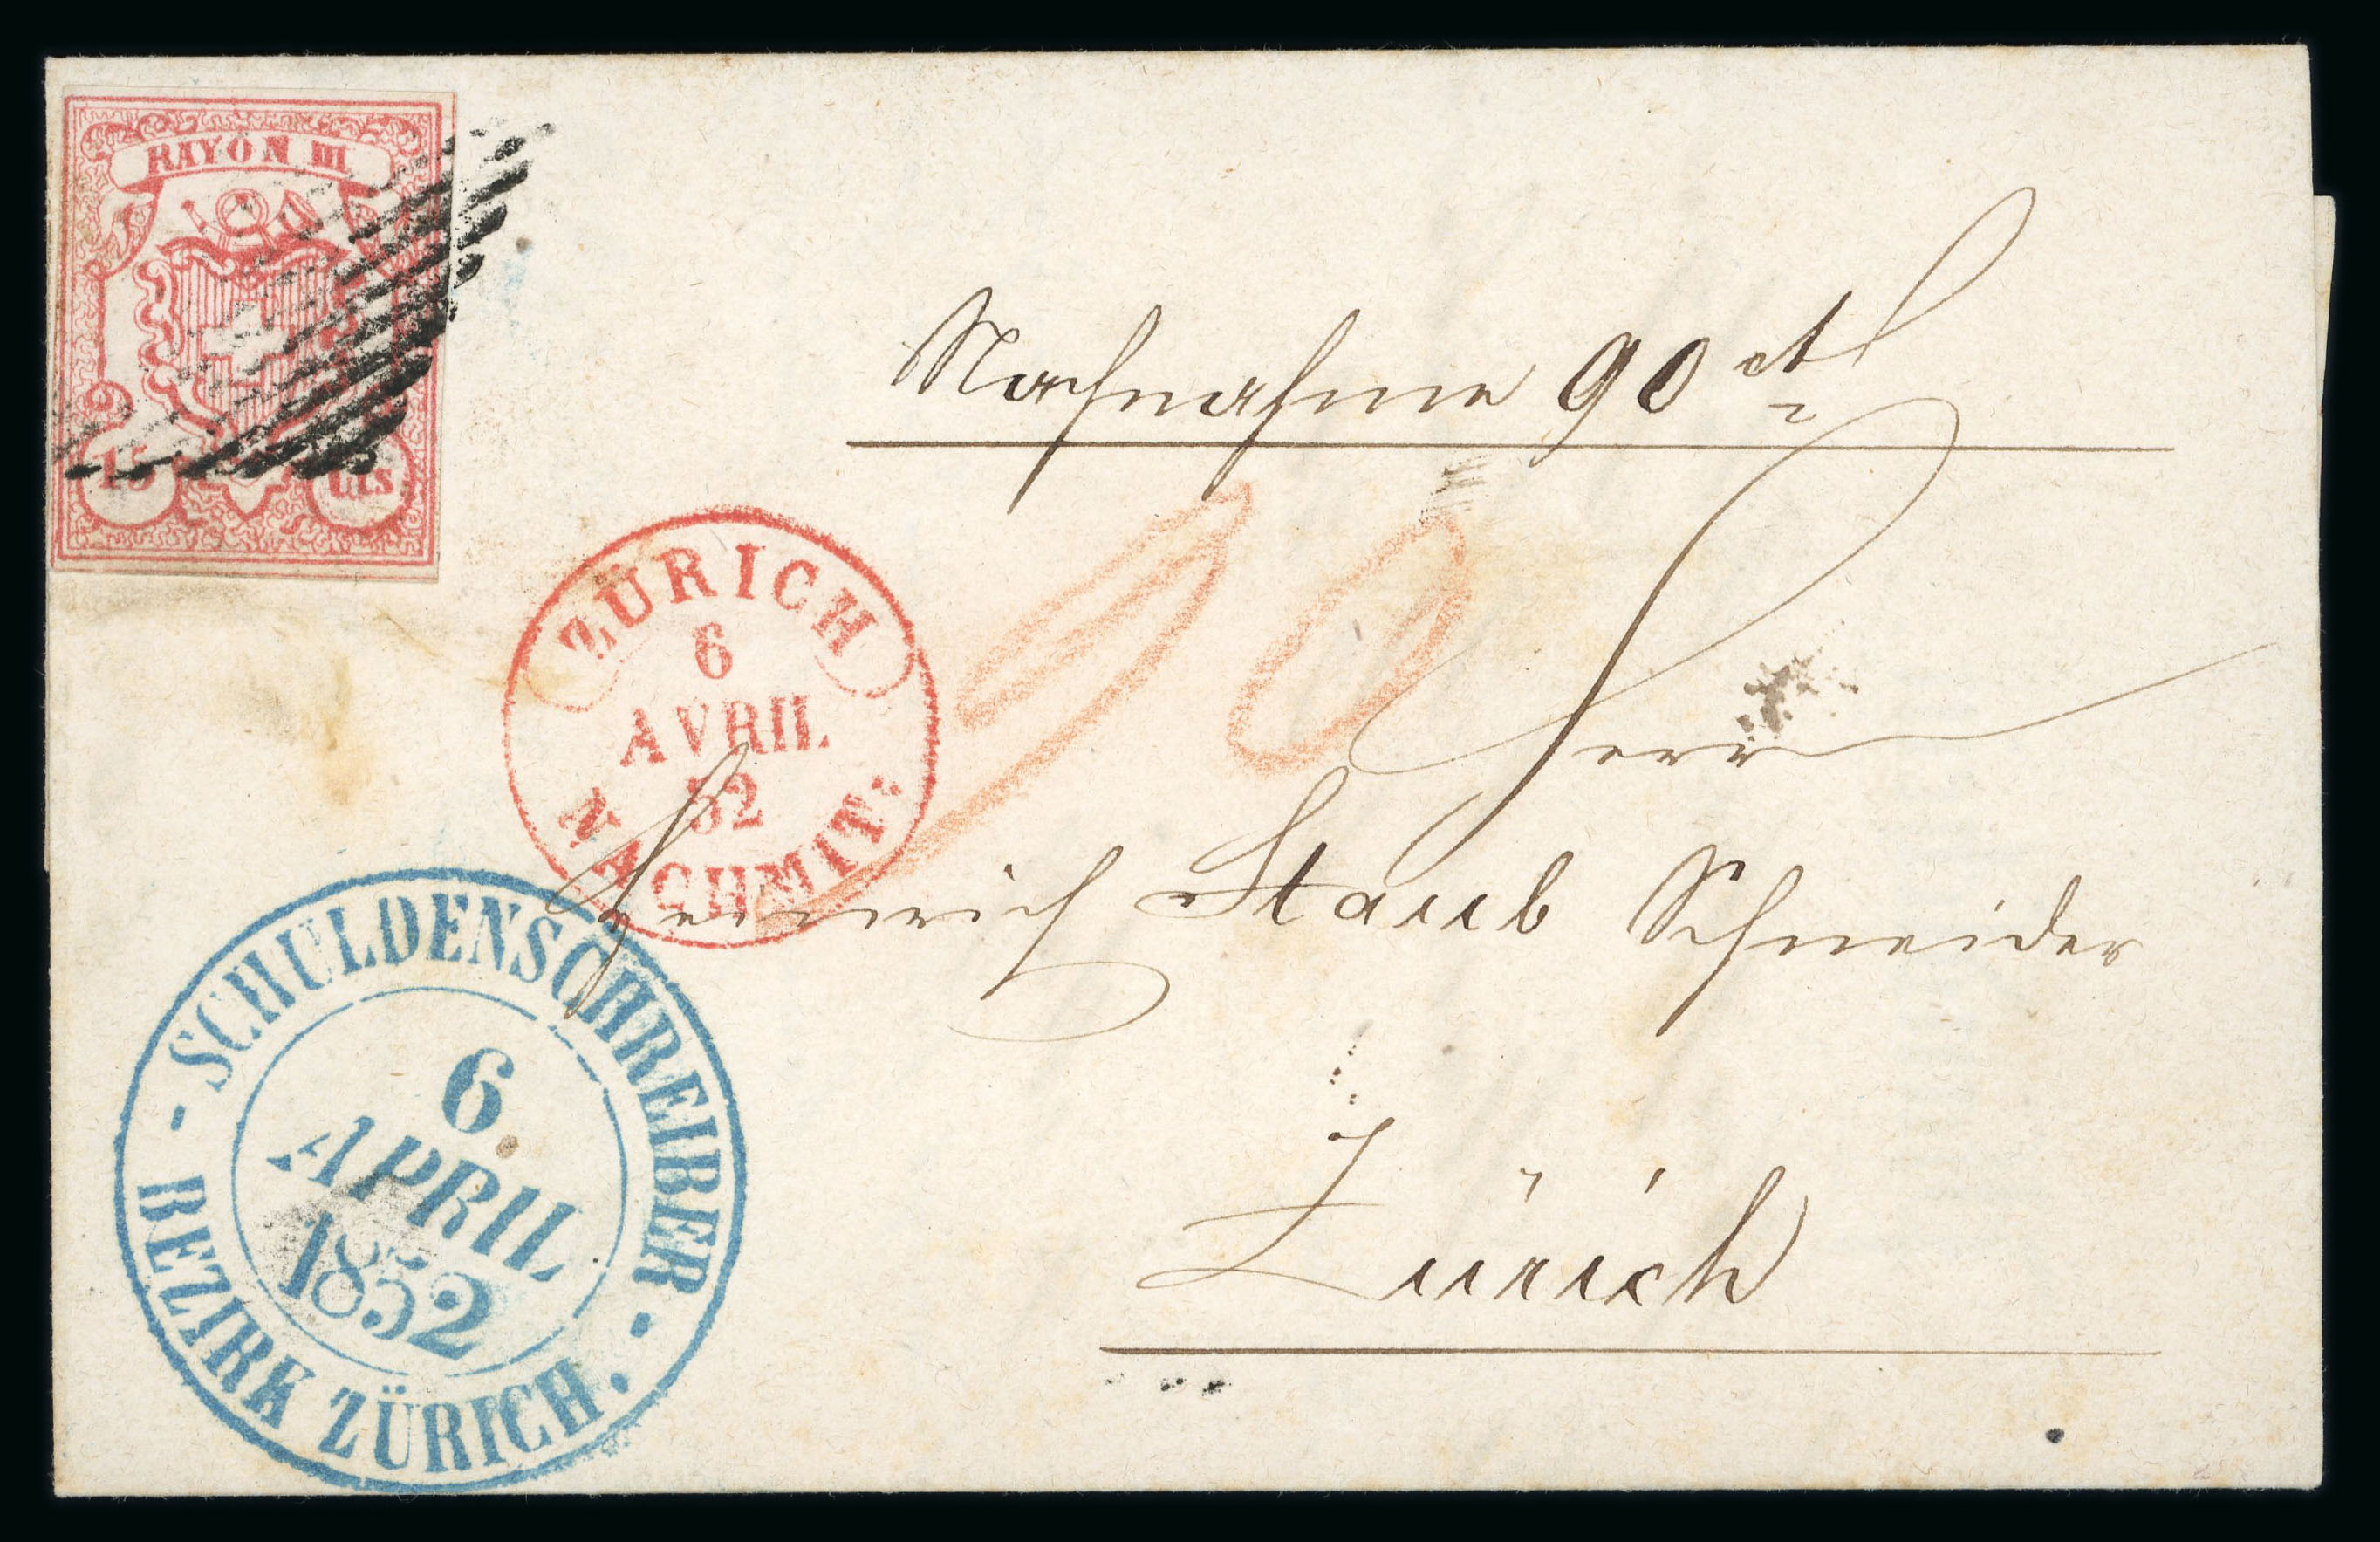 RAYON III
15 Cts
Nachnahme 90 ct
90
ZÜRICH
6
AVRIL
52
NACHMIT:
Herr
Heinrich Staub Schneider
Zürich
- SCHULDENSCHREIBER -
6.
APRIL
1852
BEZIRK ZÜRICH.